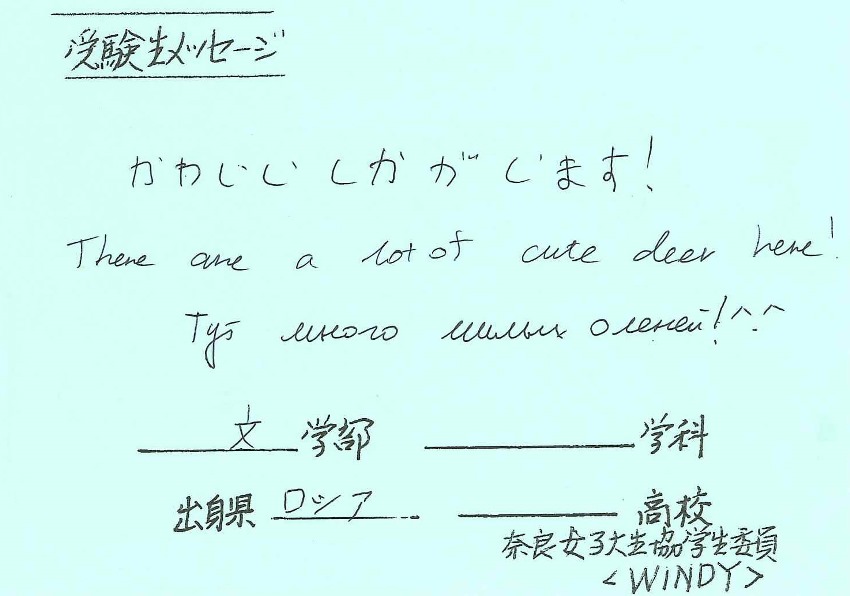 受験生メッセージ
かわいいしかがいます!
There are a lot of cute deer here!
Тут много милых оленей!^.^
文 学部 学科
出身県 ロシア 高校
奈良女子大生協学生委員
<WINDY>